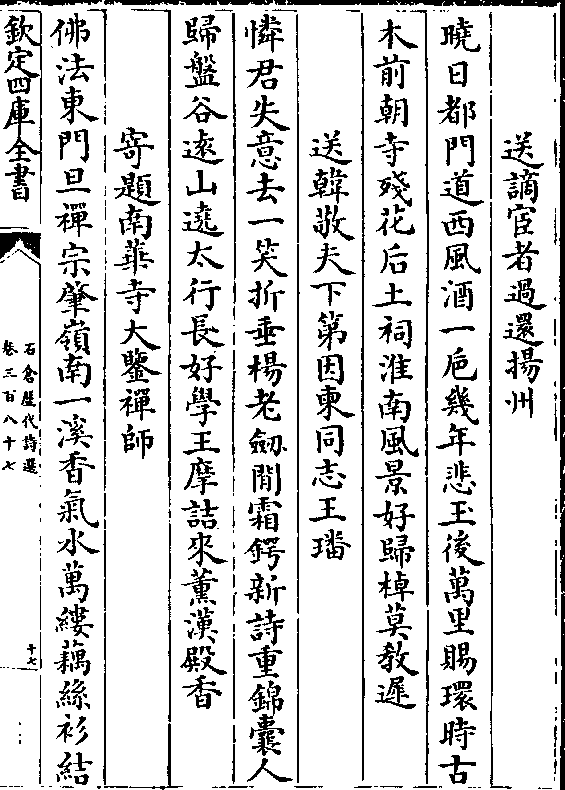 送謫宦者過還揚州
曉日都門道西風酒一巵幾年悲玉後萬里賜環時古
木前朝寺殘花后土祠淮南風景好歸棹莫教遲
送韓敬夫下第因柬同志王璠
憐君失意去一笑折垂楊老劒閒霜鍔新詩重錦囊人
歸盤谷逺山遶太行長好學王摩詰來薫漢殿香
寄題南華寺大鑒禪師
佛法東門旦禪宗肇嶺南一溪香氣水萬縷藕絲衫結
欽定四庫全書
石倉歷代詩選
卷三百八十七
十七